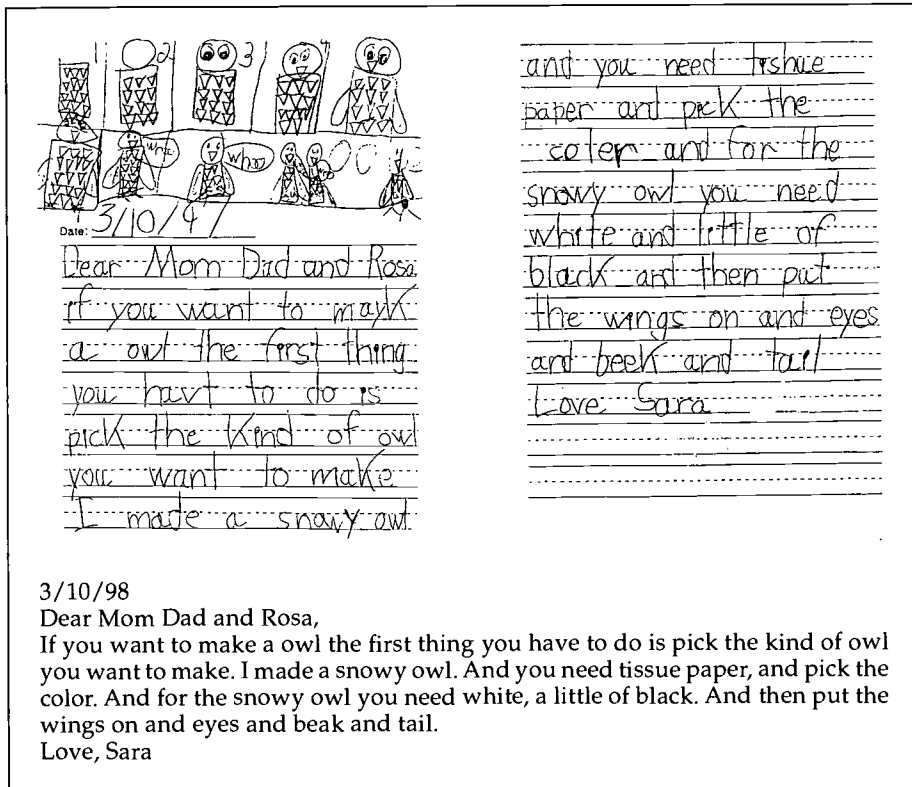 1
2
3
4
whoo
whoo
Date: 3/10/97
Dear Mom Dad and Rosa
if you want to mayk
a owl the first thing
you havt to do is
pick the kind of owl
you want to make
I made a snowy owl
and you need tishue
paper and pick the
coler and for the
snowy owl you need
white and little of
black and then put
the wings on and eyes
and beek and tail
Love Sara
3/10/98
Dear Mom Dad and Rosa,
If you want to make a owl the first thing you have to do is pick the kind of owl
you want to make. I made a snowy owl. And you need tissue paper, and pick the
color. And for the snowy owl you need white, a little of black. And then put the
wings on and eyes and beak and tail.
Love, Sara